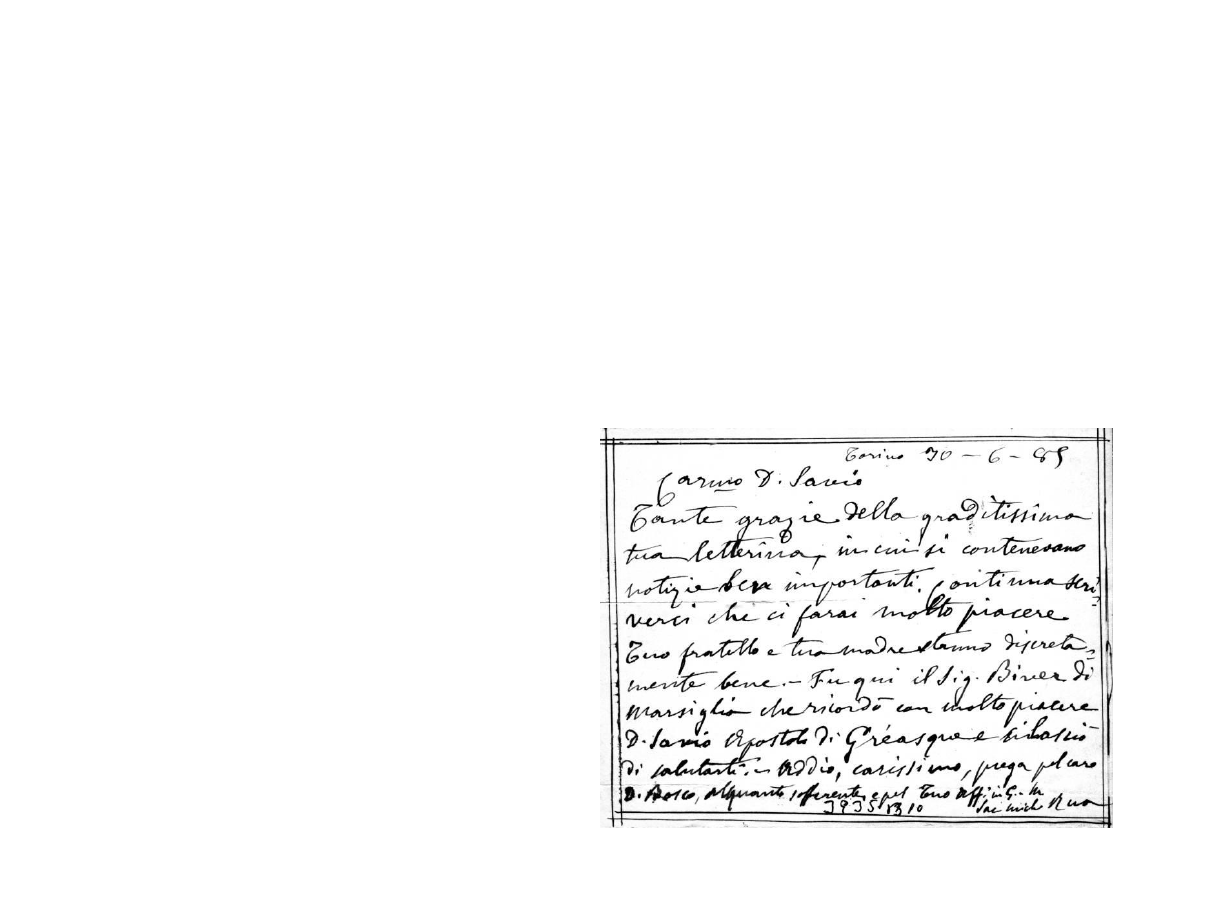 Torino 30-6-85
Carmo D. Savio
Tante grazie della graditissima
tua letterina, in cui si contenevano
notizie ben importanti. Continua scri-
verci che ci farai molto piacere
Tuo fratello e tua madre stanno discreta-
mente bene. - Fu qui il Sig. Biver di
Marsiglia che ricordò con molto piacere
D. Savio Apostolo di Gréasque e
di salutarti. - Addio, carissimo, prega pel caro
D. Bosco, alquanto sofferente, e pel tuo aff. in G. M
Sac Mich Rua